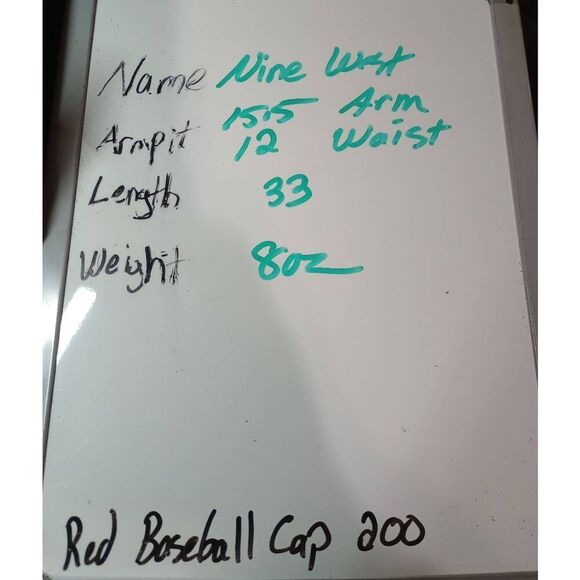 Name Nine West
Armpit 15.5 Arm
12 Waist
Length 33
Weight 8oz
Red Baseball Cap 200